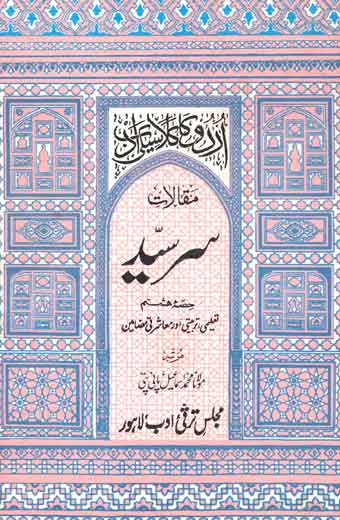 اردو کا کلاسیکی ادب
مقالات
سرسیّد
حصہ ہشتم
تعلیمی، تربیتی اور معاشرتی مضامین
مرتبہ
مولانا محمد اسماعیل پانی پتی
مجلس ترقیٔ ادب، لاہور